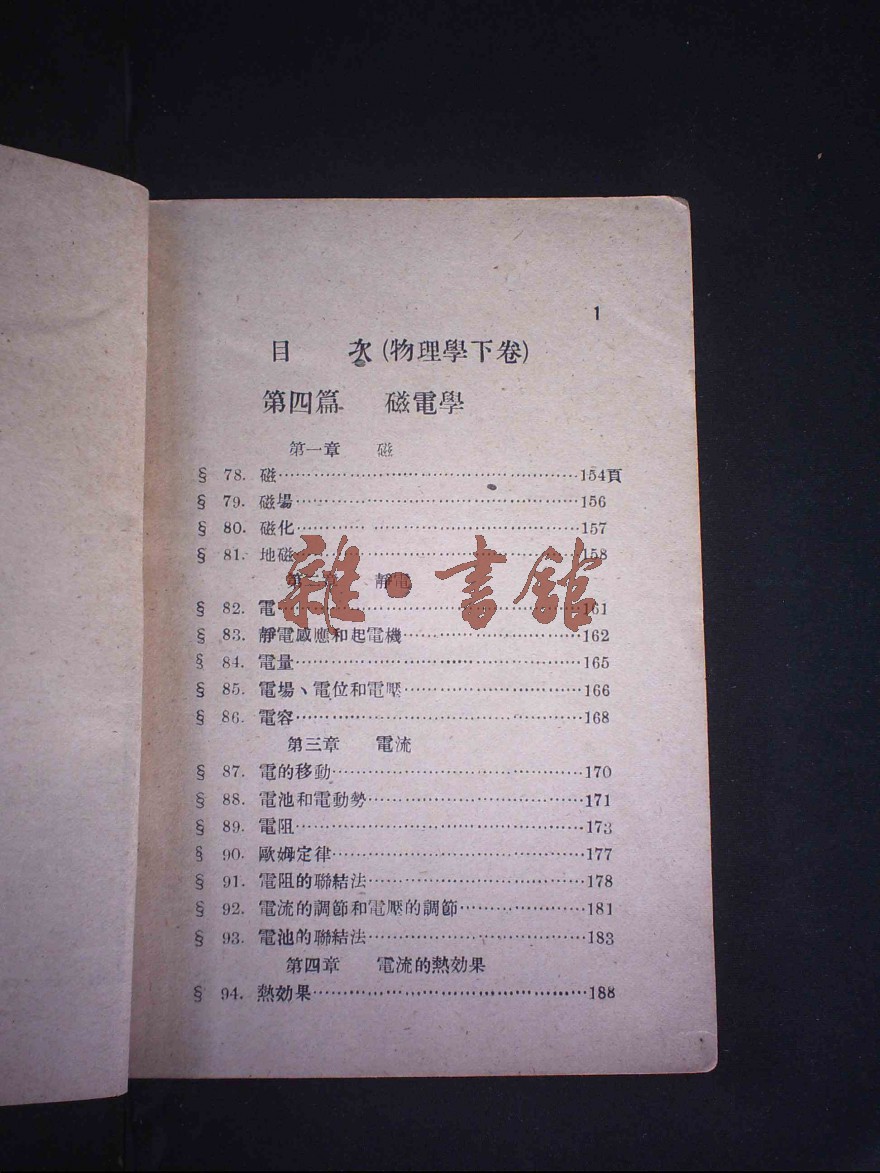 1
目 次(物理學下卷)
第四篇 磁電學
第一章 磁
§ 78. 磁……154頁
§ 79. 磁場……156
§ 80. 磁化……157
§ 81. 地磁……158
第二章 靜電
§ 82. 電……161
§ 83. 靜電感應和起電機……162
§ 84. 電量……165
§ 85. 電場、電位和電壓……166
§ 86. 電容……168
第三章 電流
§ 87. 電的移動……170
§ 88. 電池和電動勢……171
§ 89. 電阻……173
§ 90. 歐姆定律……177
§ 91. 電阻的聯結法……178
§ 92. 電流的調節和電壓的調節……181
§ 93. 電池的聯結法……183
第四章 電流的熱効果
§ 94. 熱効果……188
雜·書館